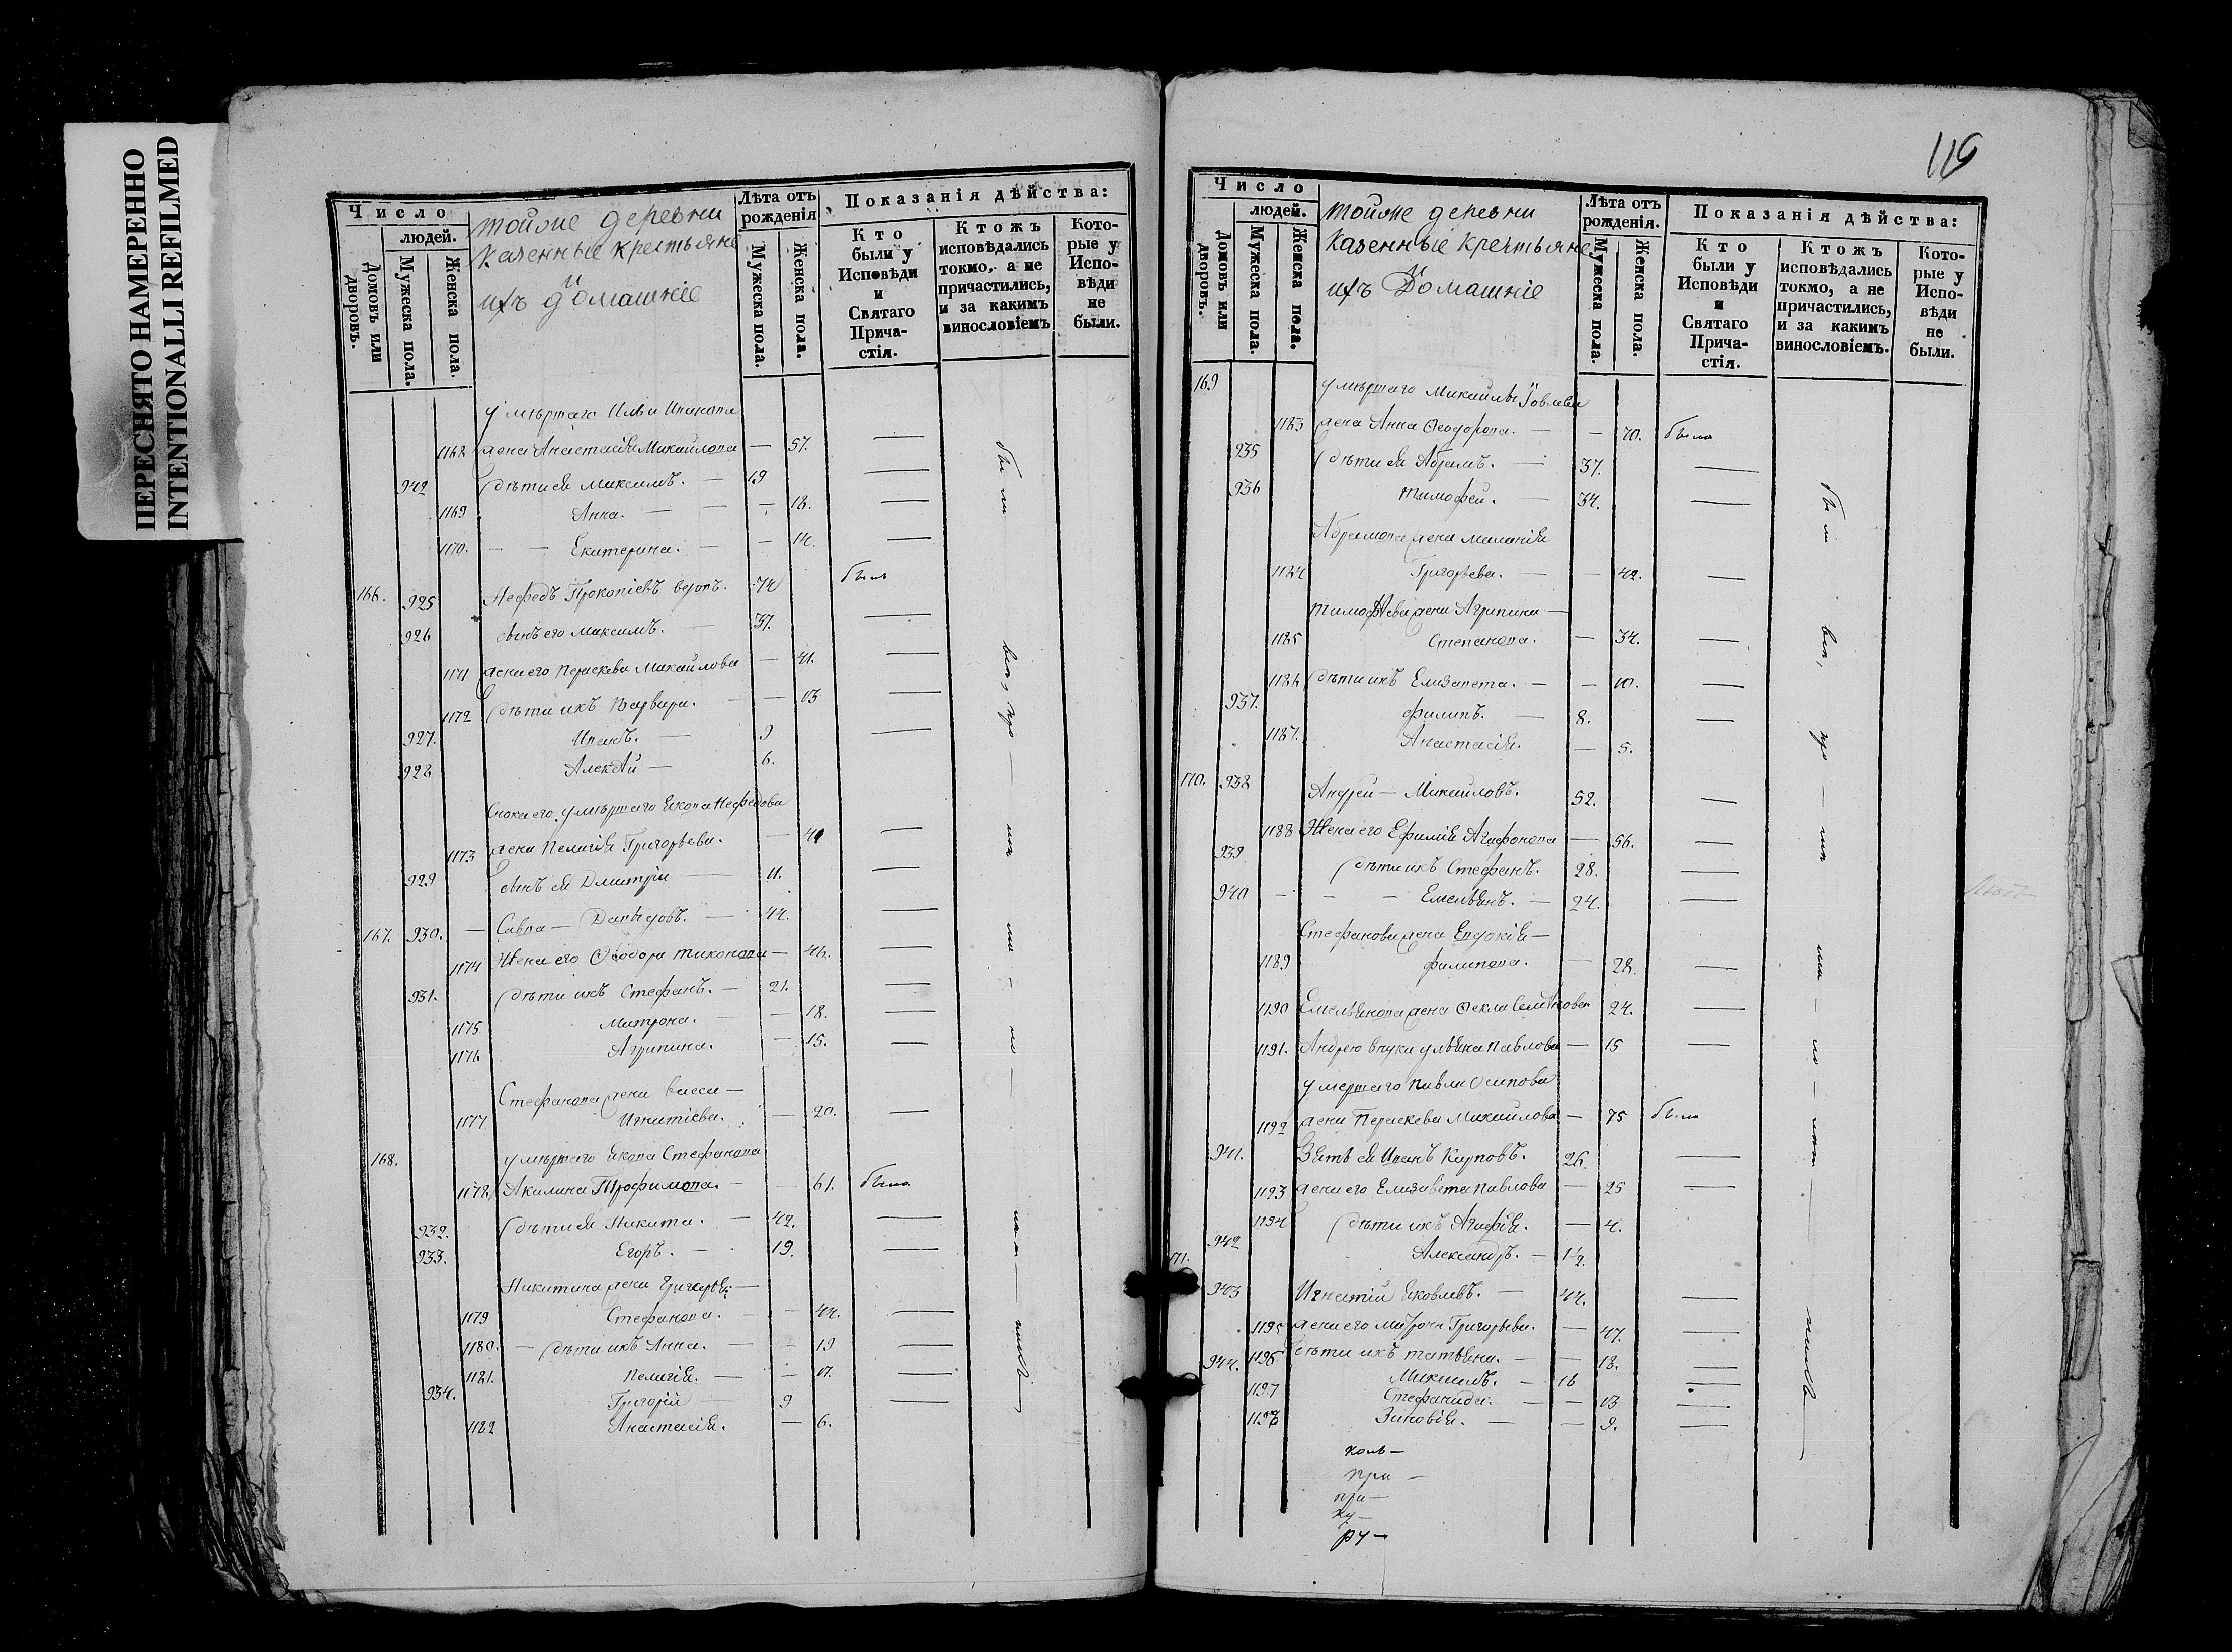 ПЕРЕСНЯТО НАМЕРЕННО
INTENTIONALLI REFILMED
Число
людей.
Домовъ или дворовъ.
Мужеска пола.
Женска пола.
тойже деревни
казенные крестьяне
и
ихъ домашніе
Лѣта отъ рожденія
Мужеска пола.
Женска пола.
Показанія дѣйства:
Кто были у Исповѣди и Святаго Причастія.
Ктожъ исповѣдались токмо, а не причастились, и за какимъ винословіемъ
Которые у Исповѣди не были.
умершаго Ильи
1168 жена Анастасія Михайлова — 57. —
942 дѣти ея Максимъ. — 19 —
1169 Анна. — — — 18. —
1170. — — Екатерина. — — 14. —
166. 925 Нефедъ Прокопіевъ вдовъ. 74 былъ
926 сынъ его Максимъ. — 37. —
1171 жена его Параскева Михайлова — 41. —
1172 дѣти ихъ Варвара. — — 13 —
927. Иванъ. — 9 —
928 Алексѣй — 6.
Сноха его, умершаго Якова Нефедова
1173 жена Пелагія Григорьева. — 41 —
929 сынъ ея Дмитрій — 11. —
167. 930. — Савва — Давыдовъ. — 44. —
1174 Жена его Ѳеодора Тихонова — 46. —
931. дѣти ихъ Стефанъ. — 21. —
1175 Матрона. — — 18. —
1176 Агрипина. — 15. —
Стефанова жена Васса —
1177 Игнатіева. — 20. —
168. умершаго Якова Стефанова
1178 Акилина Трофимова. — 61. была
932. дѣти ея Никита. — 42. —
933. Егоръ. — 19. —
Никитина жена —
1179 Стефанова. — — 44. —
1180. — дѣти ихъ Анна. — — 19 —
1181. Пелагія. — — 11. —
934. Григорій — 9 —
1182 Анастасія. — 6.
119
Число
людей.
Домовъ или дворовъ.
Мужеска пола.
Женска пола.
тойже деревни
казенные крестьяне
и
ихъ Домашніе
Лѣта отъ рожденія.
Мужеска пола.
Женска пола.
Показанія дѣйства:
Кто были у Исповѣди и Святаго Причастія.
Ктожъ исповѣдались токмо, а не причастились, и за какимъ винословіемъ.
Которые у Исповѣди не были.
169 умершаго Михаила Іовлева
1183 жена Анна Ѳеодорова. — — 70. была
935 дѣти ея Абрамъ. — 37. —
936 Тимофей. — 34. —
Абрамова жена Маланія
1184 Григорьева. — — 42. —
Тимофѣева жена Агрипина —
1185 Степанова. — 34. —
1186 дѣти ихъ Елизавета. — — 10. —
937. Филипъ. — 8. —
1187. Анастасія. — 5. —
170. 938 Андрей — Михайловъ. 52. —
1188 Жена его Ефимія Агафонова — 56. —
939 дѣти ихъ Стефанъ. 28. —
940 — — — Емельянъ. — 24. —
Стефанова жена Евдокія —
1189 Филипова. — 28. —
1190 Емельянова жена Ѳекла 24. —
1191. Андрею внука Ульяна Павлова — 15 —
умершаго Павла Осипова
1192 жена Параскева Михайлова — 75 была
941. Зять ея Иванъ Карповъ. 26. —
1193 жена его Елизавета Павлова — 25 —
1194 дѣти ихъ Агафія. — 4.
942 Александръ. — 1/2.
171.
943 Игнатій Яковлевъ. — 44. —
1195 жена его Матрона Григорьева. — 47. —
1196 дѣти ихъ Татьяна. — — 18. —
944. Максимъ. — 16 —
1197 Стефанида. — — 13 —
1198 Зиновія. — — 9. —
коль —
при —
при —
ху —
ру —